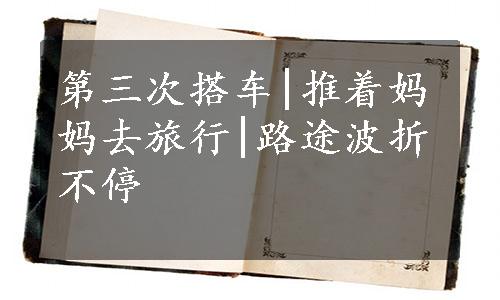 第三次搭车|推着妈
妈去旅行|路途波折
不停